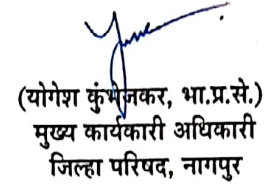 (योगेश कुंभेजकर, भा.प्र.से.)
मुख्य कार्यकारी अधिकारी
जिल्हा परिषद, नागपुर